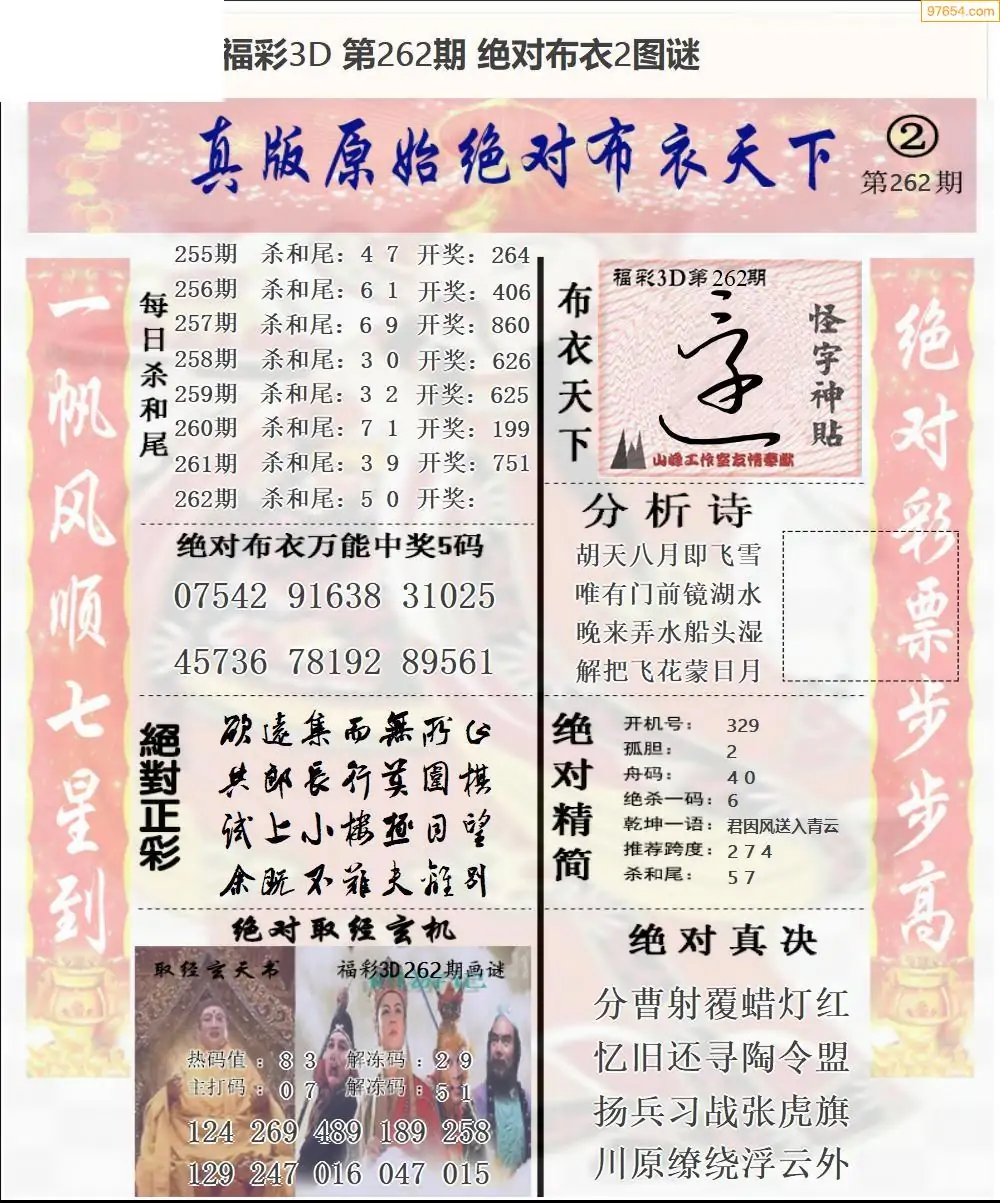 97654.com
福彩3D 第262期 绝对布衣2图谜
真版原始绝对布衣天下
②
第262期
一帆风顺七星到
每日杀和尾
255期 杀和尾：4 7 开奖：264
256期 杀和尾：6 1 开奖：406
257期 杀和尾：6 9 开奖：860
258期 杀和尾：3 0 开奖：626
259期 杀和尾：3 2 开奖：625
260期 杀和尾：7 1 开奖：199
261期 杀和尾：3 9 开奖：751
262期 杀和尾：5 0 开奖：
绝对布衣万能中奖5码
07542 91638 31025
45736 78192 89561
絕對正彩
欲遠集而無所止
共郎長行莫圍棋
试上小楼極目望
余既不難夫離别
绝对取经玄机
取经玄天书
福彩3D262期画谜
热码值：8 3 解冻码：2 9
主打码：0 7 解冻码：5 1
124 269 489 189 258
129 247 016 047 015
布衣天下
福彩3D第262期
怪字神貼
山峰工作室友情奉献
分析诗
胡天八月即飞雪
唯有门前镜湖水
晚来弄水船头湿
解把飞花蒙日月
绝对精简
开机号：329
孤胆：2
舟码：4 0
绝杀一码：6
乾坤一语：君因风送入青云
推荐跨度：2 7 4
杀和尾：5 7
绝对真决
分曹射覆蜡灯红
忆旧还寻陶令盟
扬兵习战张虎旗
川原缭绕浮云外
绝对彩票步步高